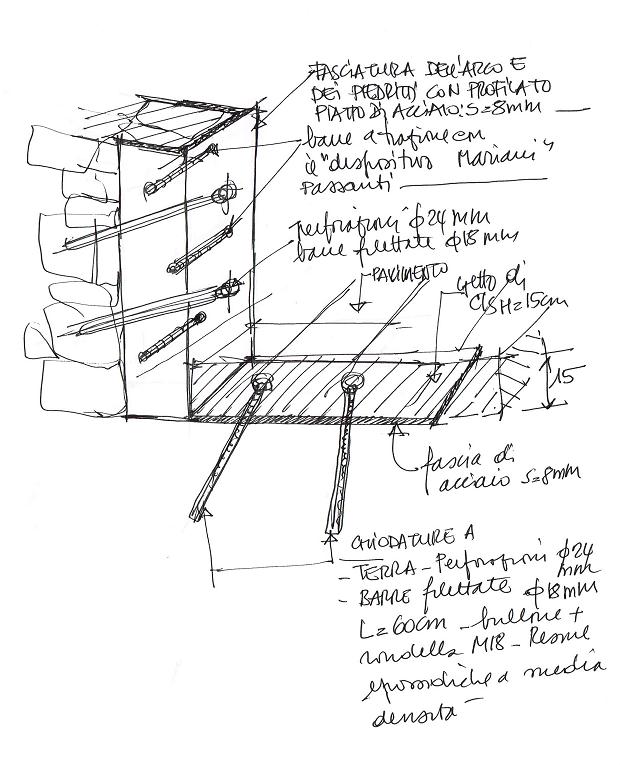 FASCIATURA DELL'ARCO E
DEI PIEDRITTI CON PROFILATO
PIATTO DI ACCIAIO: S=8mm
barre a trazione con
il "dispositivo Mariani"
Passanti
perforazioni φ24mm
barre filettate φ18mm
PAVIMENTO
getto di
Cls H=15cm
15
fascia di
acciaio S=8mm
CHIODATURE A
- TERRA - Perforazioni φ24
mm
- BARRE filettate φ18mm
L=60cm - bullone +
rondella M18 - Resine
epossidiche a media
densità